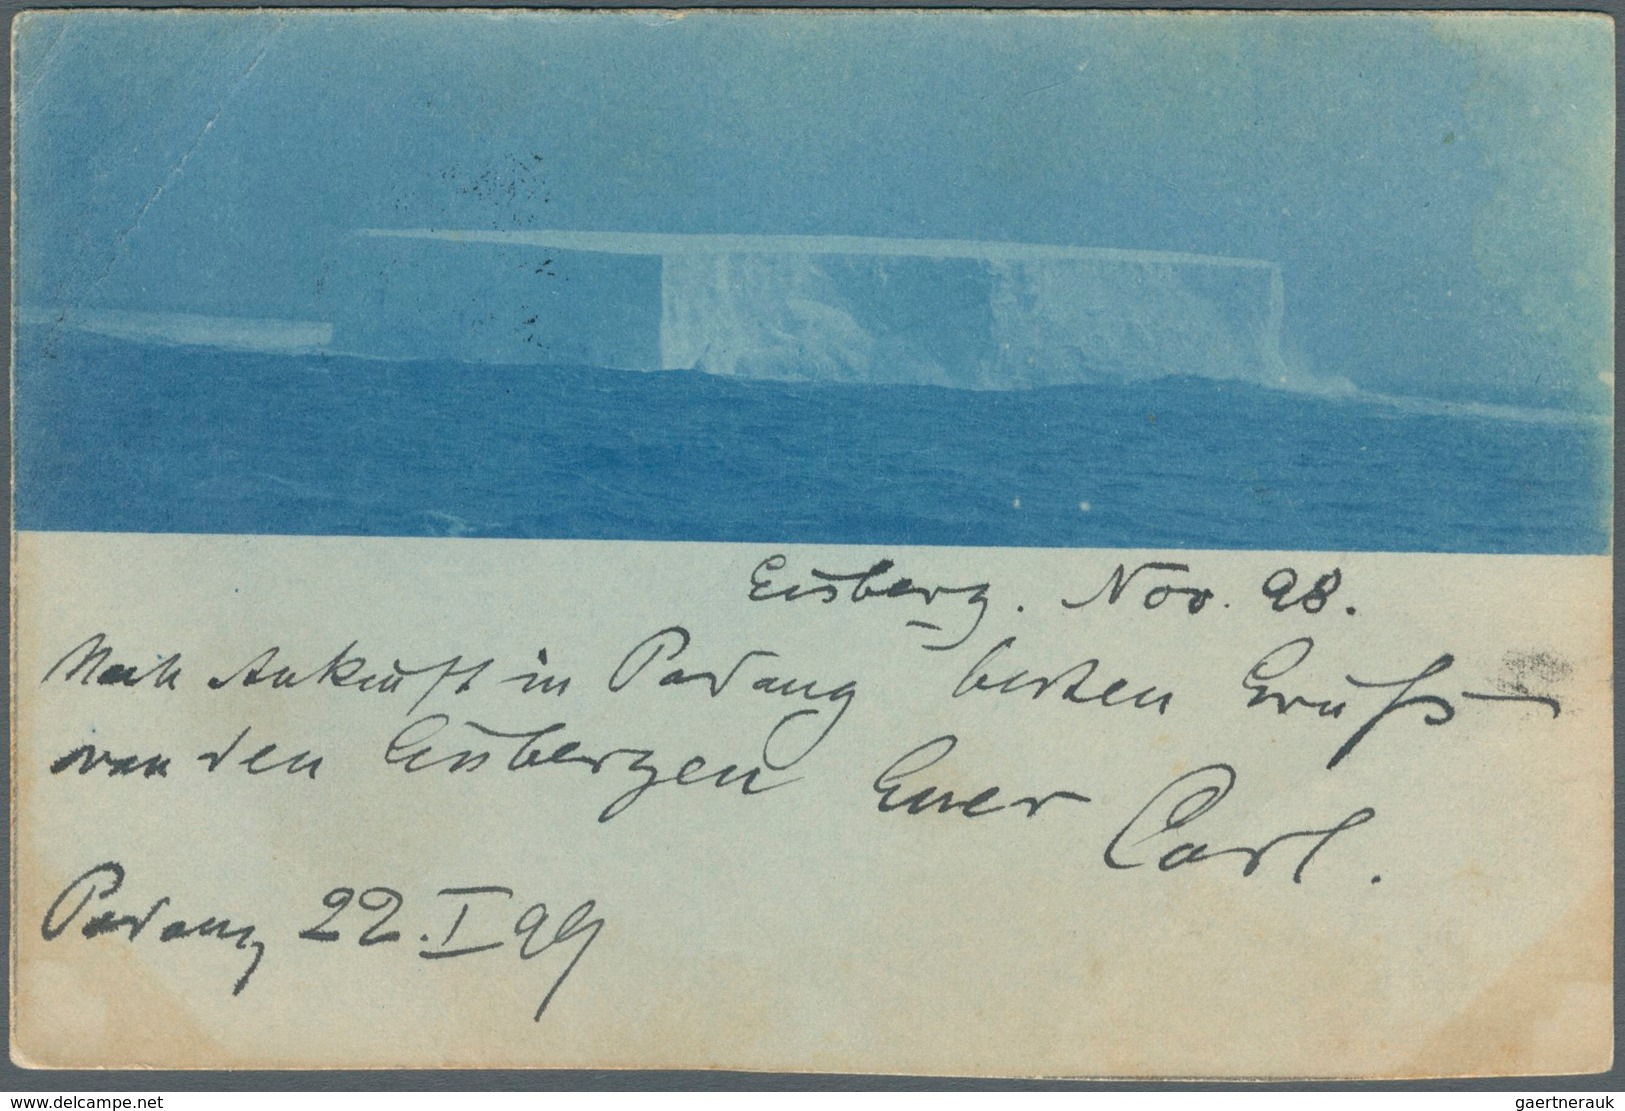 Eisberg. Nov. 98.
Nach Ankunft in Padang besten Gruß
von den Eisbergen Euer Carl.
Padang 22.I 99
www.delcampe.net
gaertnerauk